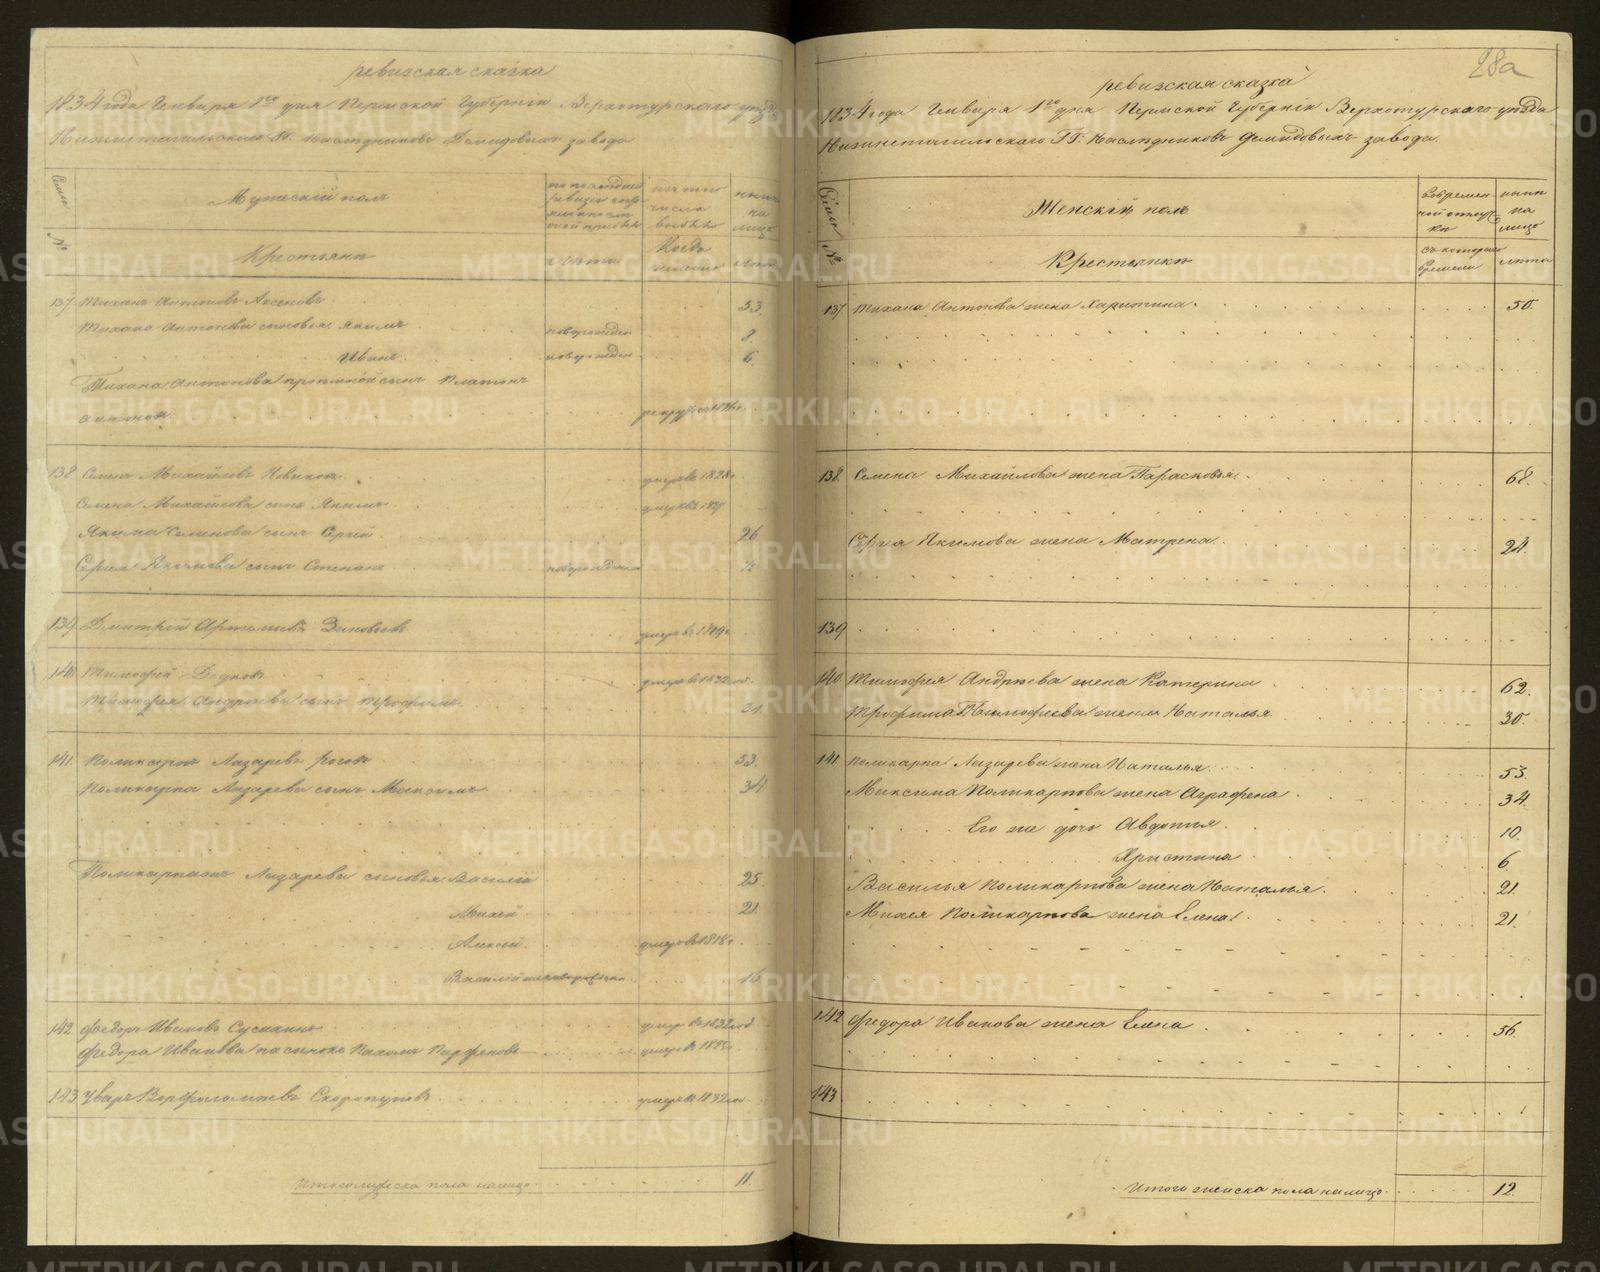 ревизская сказка
1834 года Генваря 1го дня Пермской Губернiи Верхотурскаго уѣзда
Нижнетагильскаго ГГ. Наслѣдниковъ Демидовыхъ завода
Семьи №
Мужескiй полъ
по последней ревизiи
изъ того числа выбыло
нынѣ на лицо
Крестьяне
лѣта
Когда именно
лѣта
137 Тиханъ Антоновъ Аксеновъ 53.
Тихана Антонова сыновья Якимъ новорожден 8.
Иванъ новорожден 6.
Тихана Антонова прiемной сынъ Платонъ
Антоновъ рекрут съ 1826г.
138 Семенъ Михайловъ Новиковъ умеръ въ 1828г
Семена Михайлова сынъ Якимъ умеръ въ
Якима Семенова сынъ Сергiй 26
Сергiя Якимова сынъ Степанъ новорожденъ ½
139 Дмитрiй Артемьевъ Зиновьевъ умеръ въ
140 Тимофей Дедковъ умеръ въ 1832 год.
Тимофея Андрѣева сынъ Трофимъ 31.
141. Поликарпъ Лазаревъ Роговъ 53.
Поликарпа Лазарева сынъ Максимъ 34
Поликарпа Лазарева сыновья Василiй 25.
Михей 21.
Алексiй умеръ въ 1818г
Василiй новорожден 16
142 Федоръ Ивановъ Сусанинъ умер въ 1832 год
Федора Иванова пасынокъ Пахомъ Парфеновъ умеръ въ
143 Уваръ Ворфоломѣевъ Скоропуповъ умеръ въ 1832 год
Итого мужеска пола налицо 11.
28а
ревизская сказка
1834 года Генваря 1го дня Пермской Губернiи Верхотурскаго уѣзда
Нижнетагильскаго ГГ. Наслѣдниковъ Демидовыхъ завода.
Семьи №
Женскiй полъ
во временной отлучки
нынѣ на лицо
Крестьянки
съ котораго времени
лѣта
137 Тихана Антонова жена Харитина. 50.
138. Семена Михайлова жена Парасковья. 68.
Сергiя Якимова жена Матрена. 24.
139
140. Тимофея Андрѣева жена Катерина 62.
Трофима Тимофеева жена Наталья 30.
141. Поликарпа Лазарева жена Наталья. 53.
Максима Поликарпова жена Аграфена. 34.
Его же дочь Авдотья. 10.
Христина 6.
Василья Поликарпова жена Наталья. 21.
Михея Поликарпова жена Елена. 21.
142 Федора Иванова жена Елена 56.
143
Итого женска пола налицо. 12.
METRIKI.GASO-URAL.RU